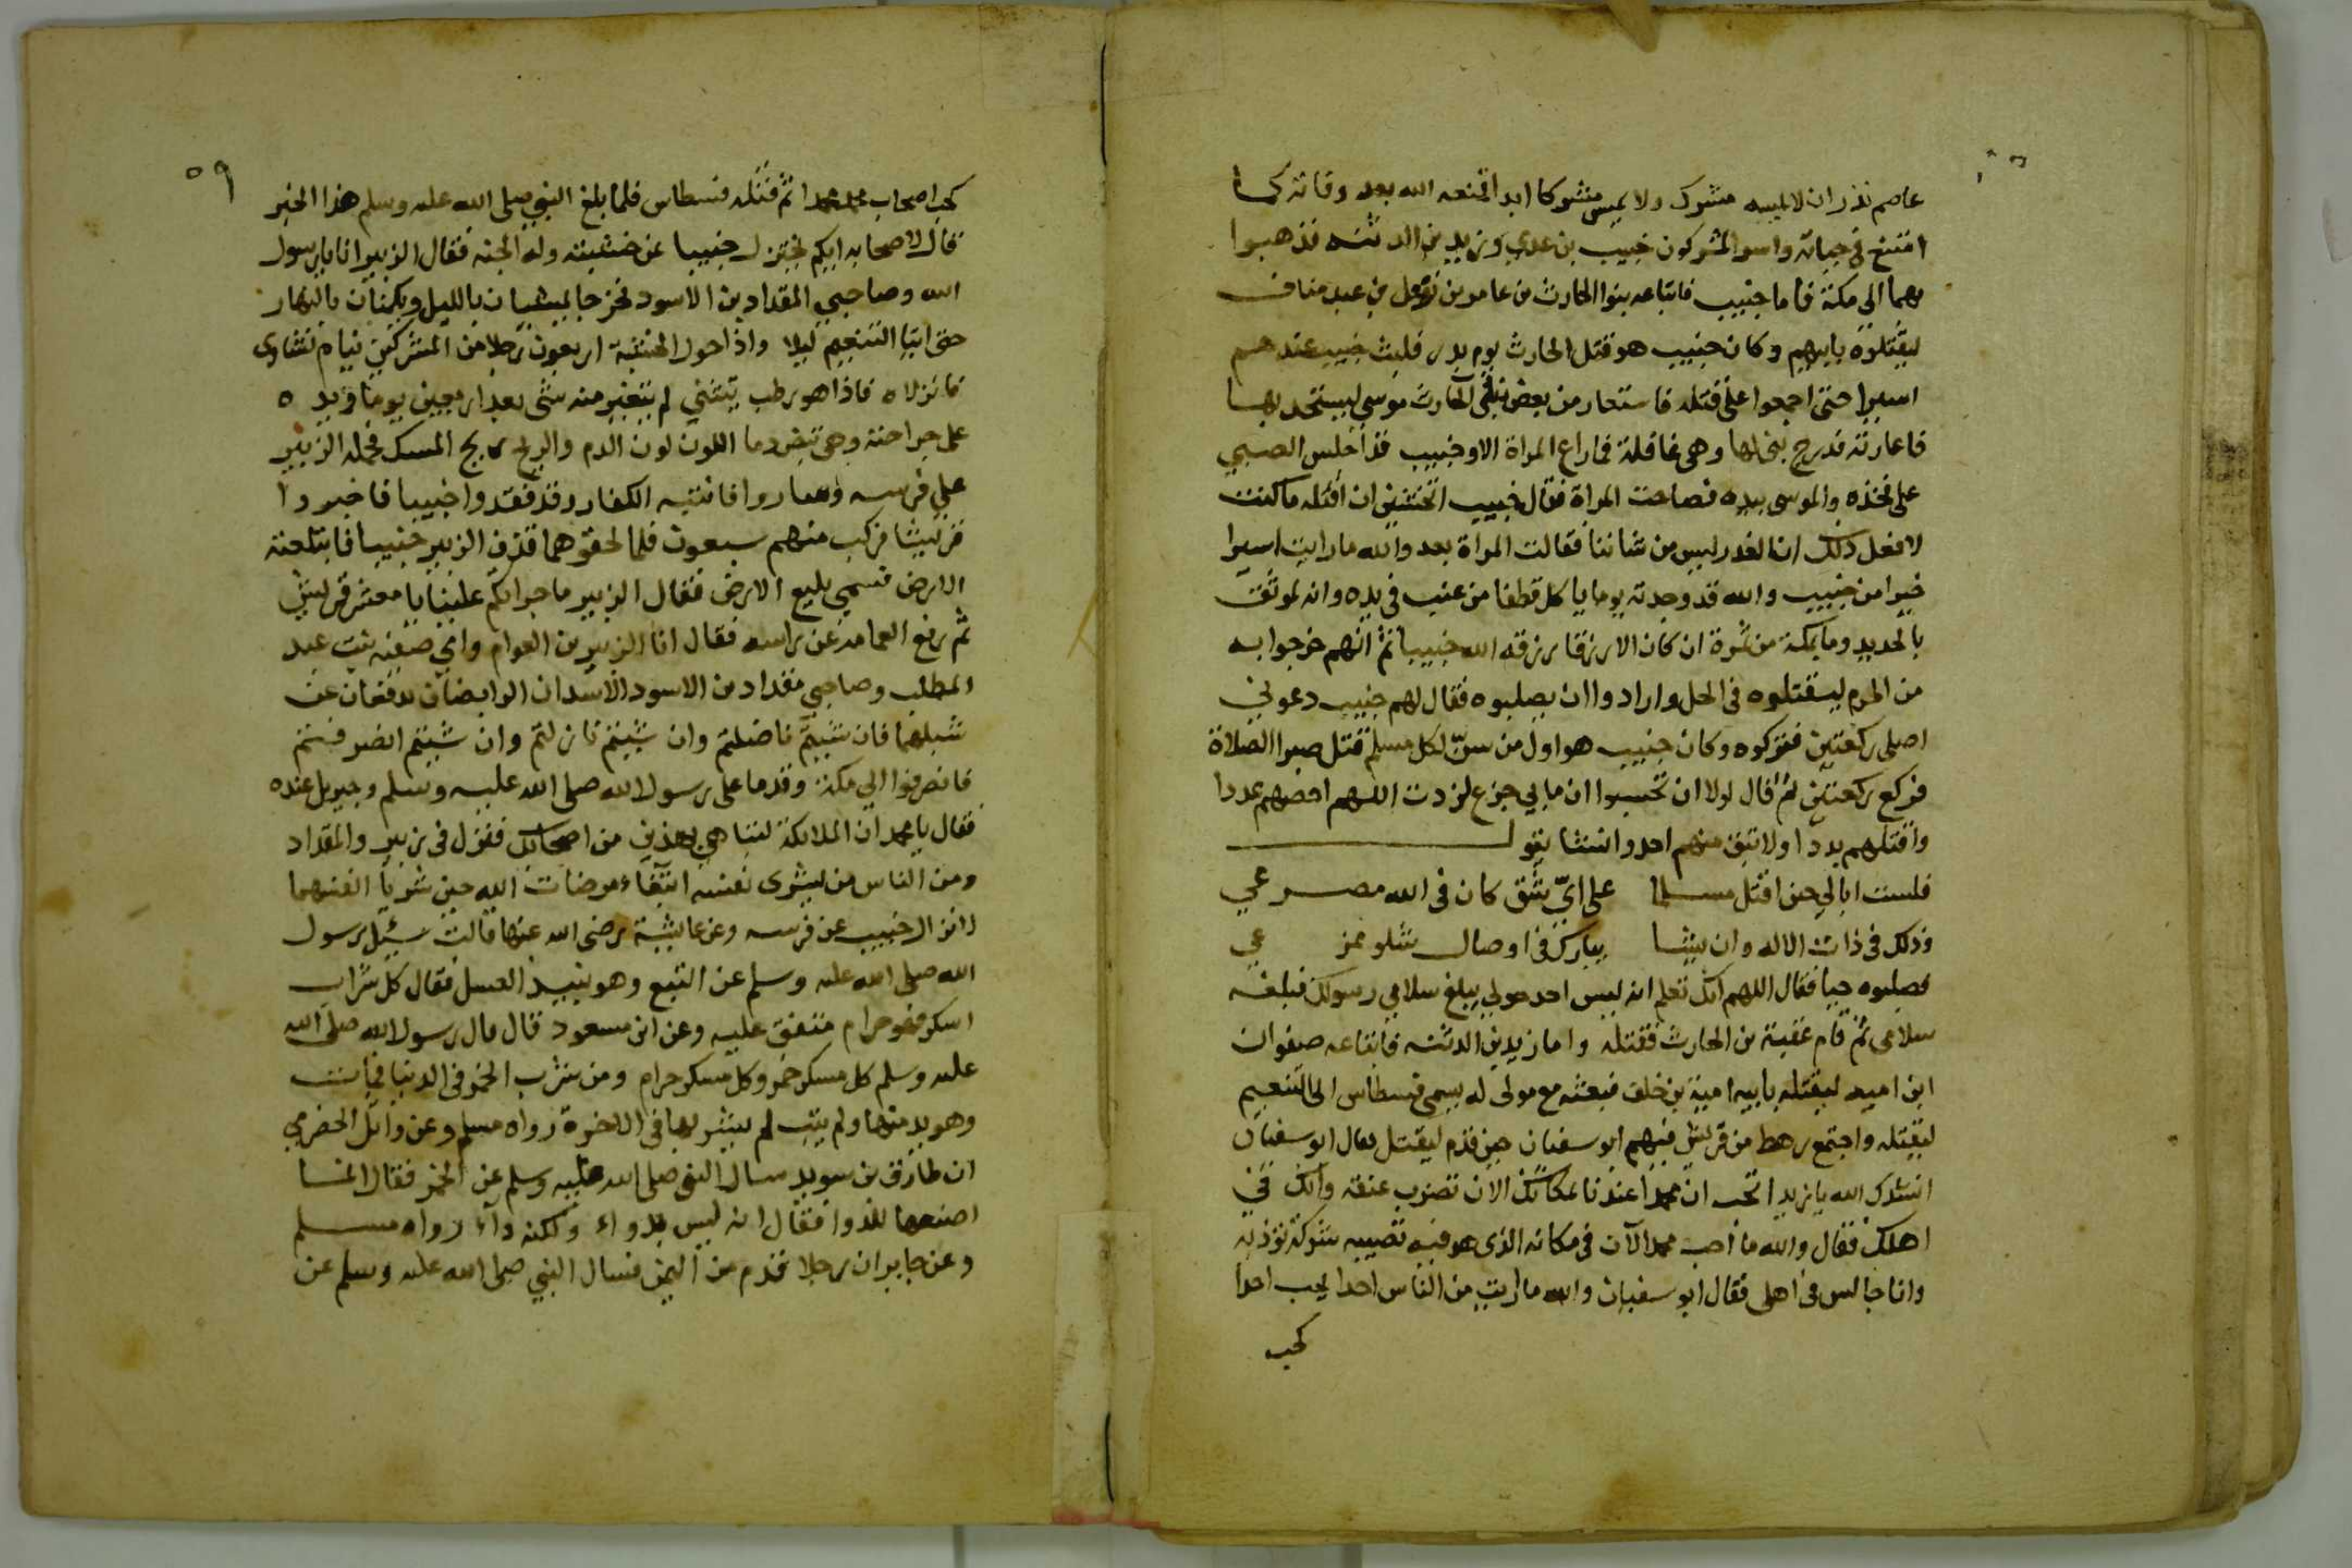 عاصم نذر ان لا يمسه مشرك ولا يمس مشركا ابدا فمنعه الله بعد وفاته كما
امتنع في حياته واسر المشركون خبيب بن عدي وزيد بن الدثنه فذهبوا
بهما الى مكة فاما خبيب فابتاعه بنوا الحارث بن عامر بن نوفل بن عبد مناف
ليقتلوه بابيهم وكان خبيب هو قتل الحارث يوم بدر فلبث خبيب عندهم
اسيرا حتى اجمعوا على قتله فاستعار من بعض بنات الحارث موسى ليستحد بها
فاعارته فدرج بنى لها وهى غافلة فما راع المراة الا وخبيب قد اجلس الصبي
على فخذه والموسى بيده فصاحت المراة فقال خبيب اتخشين ان اقتله ما كنت
لافعل ذلك ان الغدر ليس من شاننا فقالت المراة بعد والله ما رايت اسيرا
خيرا من خبيب والله قد وجدته يوما ياكل قطفا من عنب في يده وانه لموثق
بالحديد وما بمكة من ثمرة ان كان الا رزقا رزقه الله خبيبا ثم انهم خرجوا به
من الحرم ليقتلوه في الحل وارادوا ان يصلبوه فقال لهم خبيب دعوني
اصلى ركعتين فتركوه وكان خبيب هو اول من سن لكل مسلم قتل صبرا الصلاة
فركع ركعتين ثم قال لولا ان تحسبوا ان ما بي جزع لزدت اللهم احصهم عددا
واقتلهم بددا ولا تبق منهم احد وانشا يقول
فلست ابالي حين اقتل مسلما على اي شق كان في الله مصرعي
وذلك في ذات الاله وان يشا يبارك في اوصال شلو ممزعي
فصلبوه حيا فقال اللهم انك تعلم انه ليس احد حولي يبلغ سلامي رسولك فبلغه
سلامى ثم قام عقبة بن الحارث فقتله واما زيد بن الدثنه فابتاعه صفوان
ابن اميه ليقتله بابيه امية بن خلف فبعثه مع مولى له يسمى قسطاس الى التنعيم
ليقتله واجتمع رهط من قريش فيهم ابو سفيان حين قدم ليقتل فقال ابو سفيان
انشدك الله يا زيد اتحب ان محمدا عندنا بمكانك الان تضرب عنقه وانك في
اهلك فقال والله ما احب محمدا الآن في مكانه الذى هو فيه تصيبه شوكة تؤذيه
وانا جالس في اهلى فقال ابو سفيان والله ما رايت من الناس احدا يحب احدا
كحب
٥٩
كحب اصحاب محمد محمدا ثم قتله قسطاس فلما بلغ النبي صلى الله عليه وسلم هذا الخبر
قال لاصحابه ايكم يختزل خبيبا عن خشبته وله الجنه فقال الزبير انا يا رسول
الله وصاحبي المقداد بن الاسود فخرجا يمشيان بالليل ويكمنان بالنهار
حتى اتيا التنعيم ليلا واذا حول الخشبة اربعون رجلا من المشركين نيام نشاوى
فانزلاه فاذا هو رطب يتثنى لم يتغير منه شى بعد اربعين يوما ويده
على جراحته وهى تبض دما اللون لون الدم والريح ريح المسك فحمله الزبير
على فرسه وسارا فانتبه الكفار وقد فقدوا خبيبا فاخبروا
قريشا فركب منهم سبعون فلما لحقوهما قذف الزبير خبيبا فابتلعته
الارض فسمي بليع الارض فقال الزبير ما جراكم علينا يا معشر قريش
ثم رفع العمامة عن راسه فقال انا الزبير بن العوام وامي صفيه بنت عبد
المطلب وصاحبي مقداد بن الاسود الاسدان الرابضان يدفعان عن
شبلهما فان شيتم ناضلتم وان شيتم نازلتم وان شيتم انصرفتم
فانصرفوا الى مكة وقدما على رسول الله صلى الله عليه وسلم وجبريل عنده
فقال يا محمد ان الملائكة لتباهي بهذين من اصحابك فنزل في زبير والمقداد
ومن الناس من يشرى نفسه ابتغاء مرضات الله حين شريا انفسهما
لانزال خبيب عن فرسه وعن عايشة رضى الله عنها قالت سئل رسول
الله صلى الله عليه وسلم عن البتع وهو نبيذ العسل فقال كل شراب
اسكر فهو حرام متفق عليه وعن ابن مسعود قال قال رسول الله صلى الله
عليه وسلم كل مسكر خمر وكل مسكر حرام ومن شرب الخمر في الدنيا فمات
وهو يدمنها ولم يتب لم يشربها في الاخرة رواه مسلم وعن وائل الحضرمي
ان طارق بن سويد سال النبي صلى الله عليه وسلم عن الخمر فقال انما
اصنعها للدوا فقال انه ليس بدواء ولكنه داء رواه مسلم
وعن جابر ان رجلا قدم من اليمن فسال النبي صلى الله عليه وسلم عن